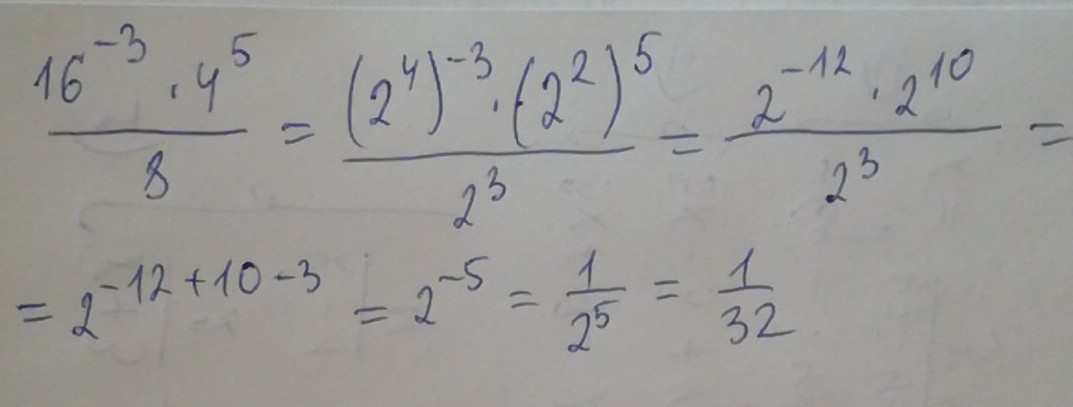 \frac{16^{-3} \cdot 4^5}{8} = \frac{(2^4)^{-3} \cdot (2^2)^5}{2^3} = \frac{2^{-12} \cdot 2^{10}}{2^3} =
= 2^{-12+10-3} = 2^{-5} = \frac{1}{2^5} = \frac{1}{32}